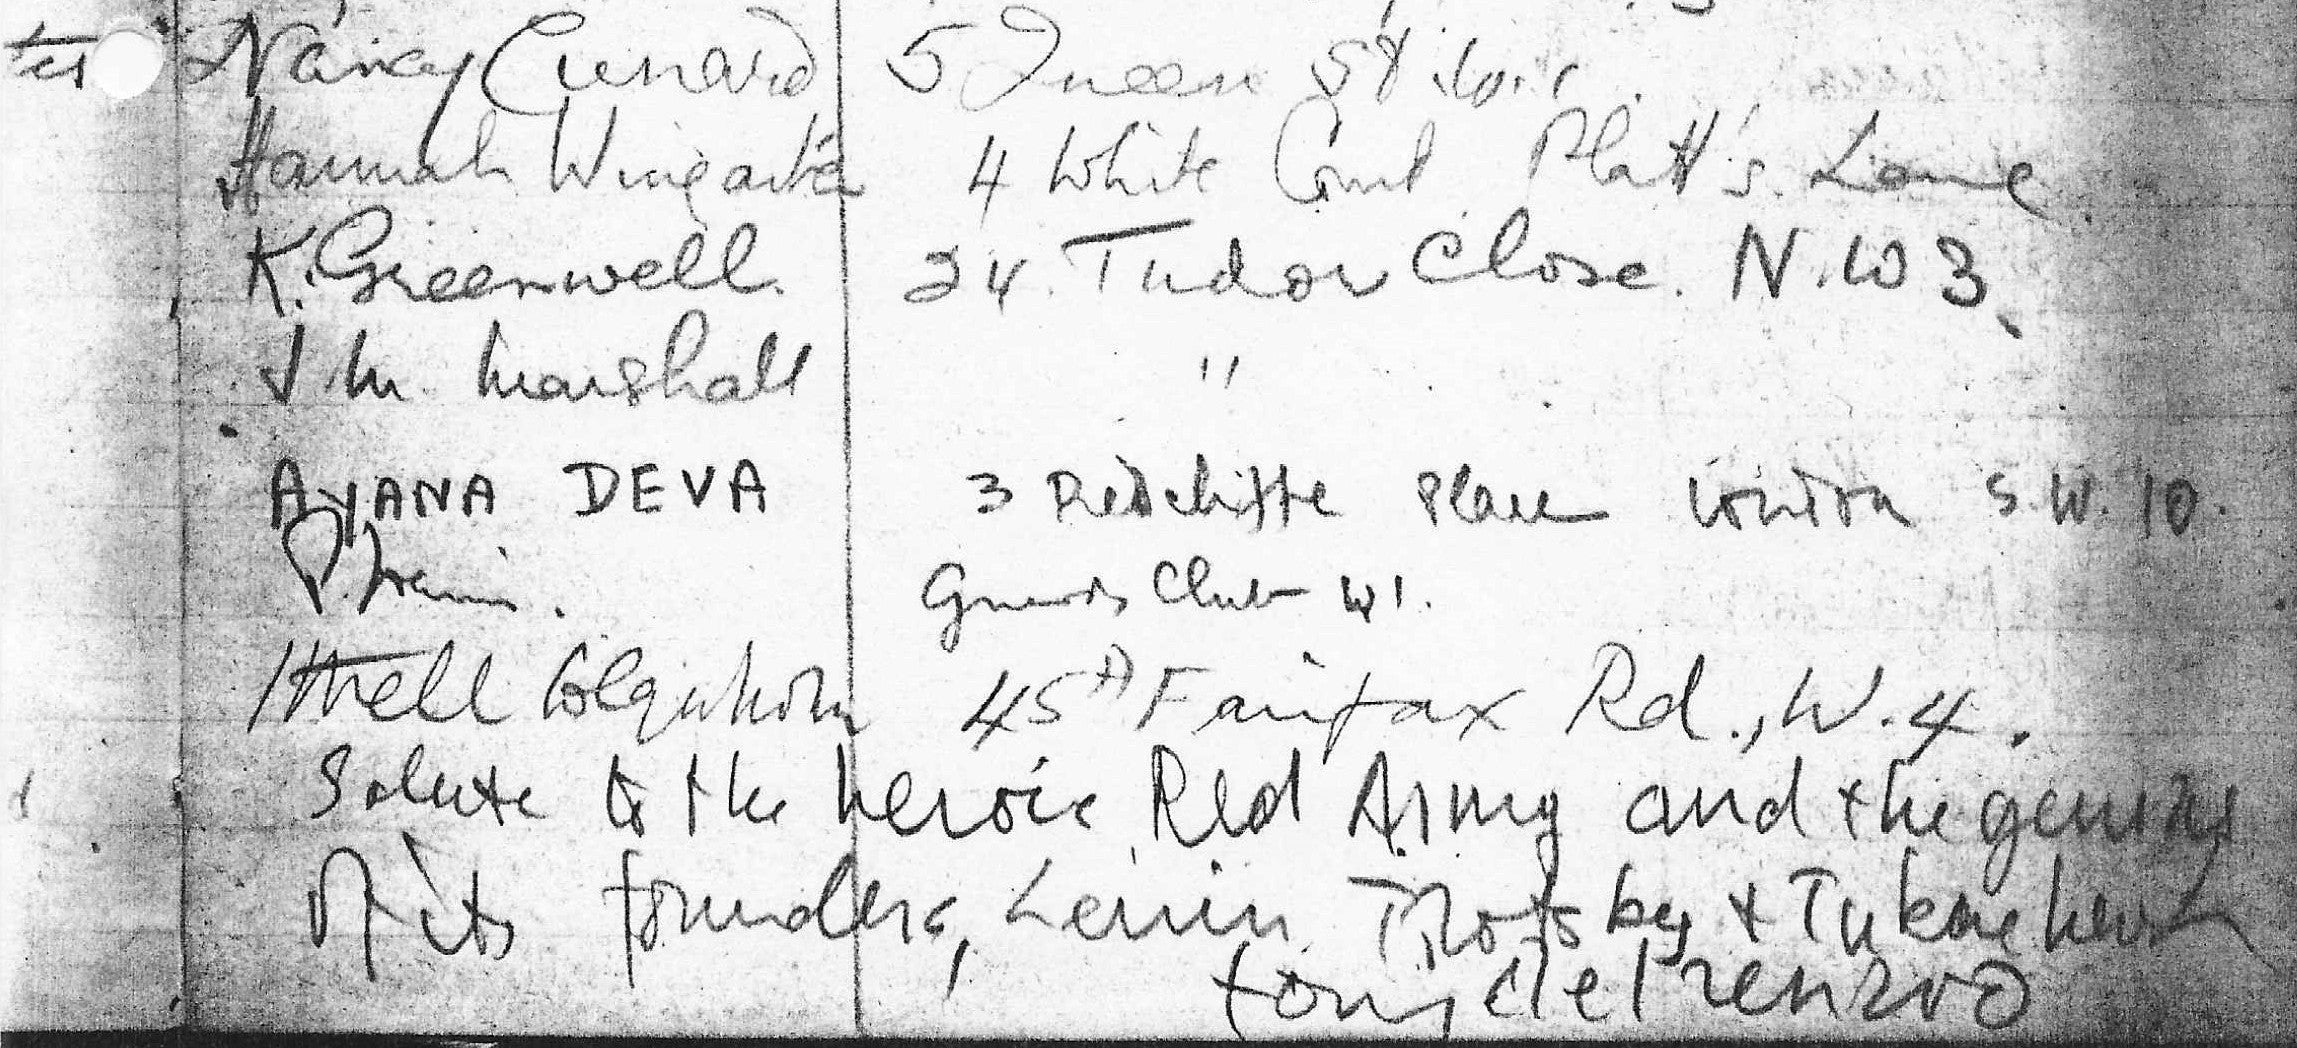 Nancy Cunard 5 Queen St. W.1
Hannah Wingate 4 White Court Platt's Lane
K. Greenwell. 24. Tudor Close. N.W 3.
J. M. Marshall "
AYANA DEVA 3 Redcliffe Place London S.W. 10.
Guards Club W1.
Ithell Colquhoun 45A Fairfax Rd., W.4.
Salute to the heroic Red Army and the genius
of its founders, Lenin Trotsky + Tukachevsk
tony del renzio